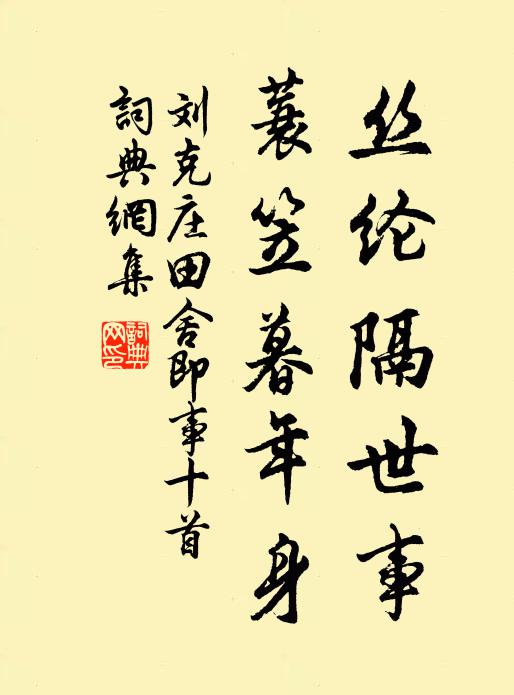 丝纶隔世事
蓑笠暮年身
刘克庄田舍即事十首
詞典網集
詞典网印